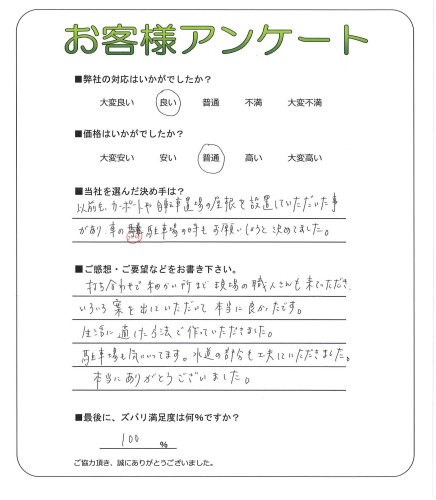 お客様アンケート
■弊社の対応はいかがでしたか？
大変良い 良い 普通 不満 大変不満
■価格はいかがでしたか？
大変安い 安い 普通 高い 大変高い
■当社を選んだ決め手は？
以前も、カーポートや自転車置場の屋根を設置していただいた事
があり、車の駐車場の時もお願いしようと決めてました。
■ご感想・ご要望などをお書き下さい。
打ち合わせで細かい所まで現場の職人さんも来ていただき、
いろいろ案を出していただいて本当に良かったです。
生活に適した方法で作っていただきました。
駐車場も気にいってます。水道の部分も工夫していただきました。
本当にありがとうございました。
■最後に、ズバリ満足度は何％ですか？
100 ％
ご協力頂き、誠にありがとうございました。